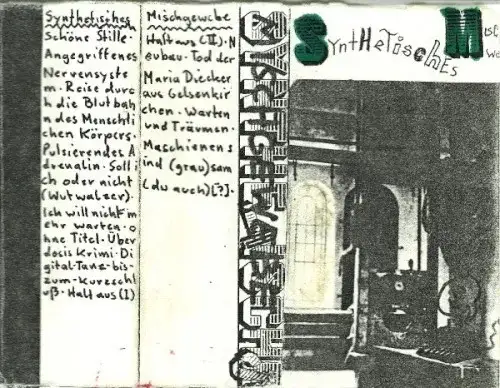 Synthetisches
Schöne Stille.
Angegriffenes
Nervensyste
m. Reise durc
h die Blutbah
n des Menschli
chen Körpers.
Pulsierendes A
drenalin. Soll i
ch oder nicht
(Wutwalzer).
Ich will nicht m
ehr warten. o
hne Titel. Über
dosis Krimi. Di
gital-Tanz-bis-
zum-Kurzschl
uß. Halt aus (I)
Mischgewebe
Halt aus (II). N
eubau. Tod der
Maria Diecker
aus Gelsenkir
chen. Warten
und Träumen.
Maschienen s
ind (grau)sam
(du auch)[?].
SYntHeTiscHEs